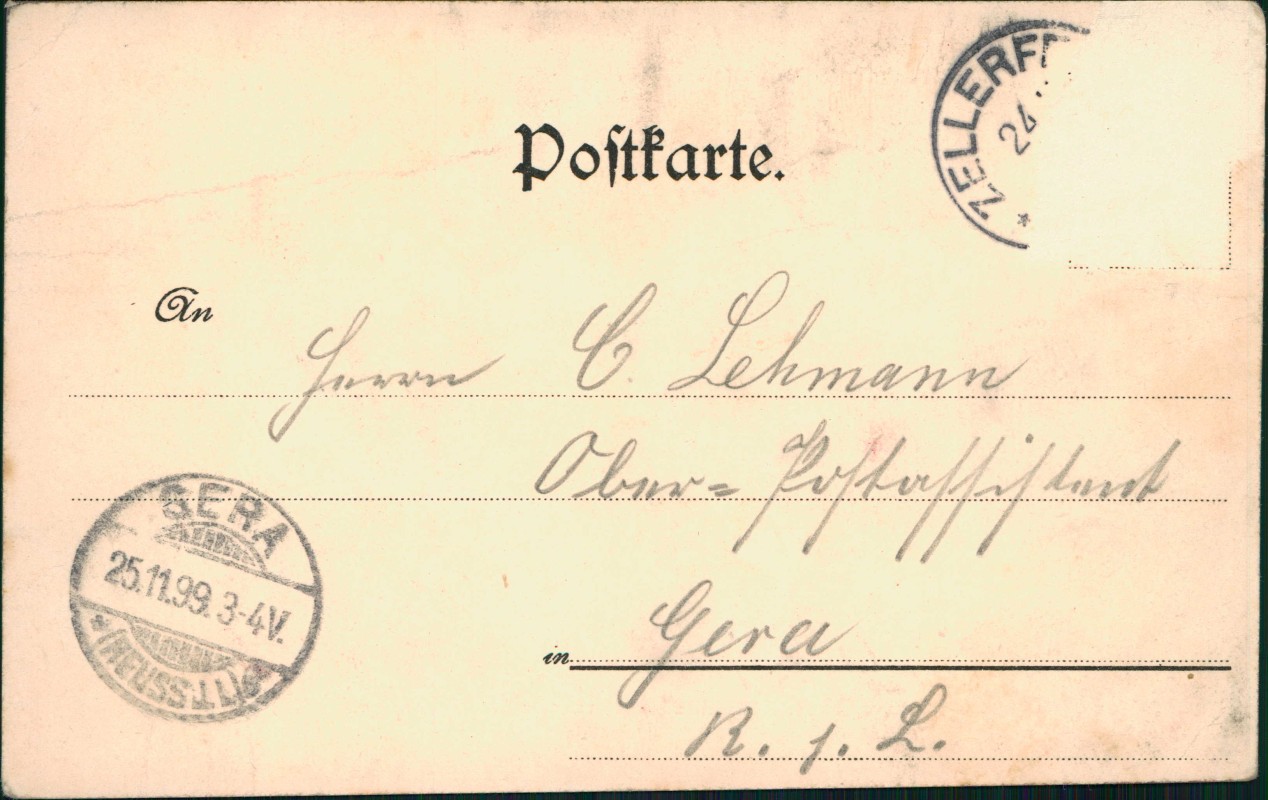 Postkarte.
ZELLERF
24
An
Herrn C. Lehmann
Ober-Postassistent
in Gera
R. j. L.
GERA
25.11.99. 3-4V.
(REUSS)